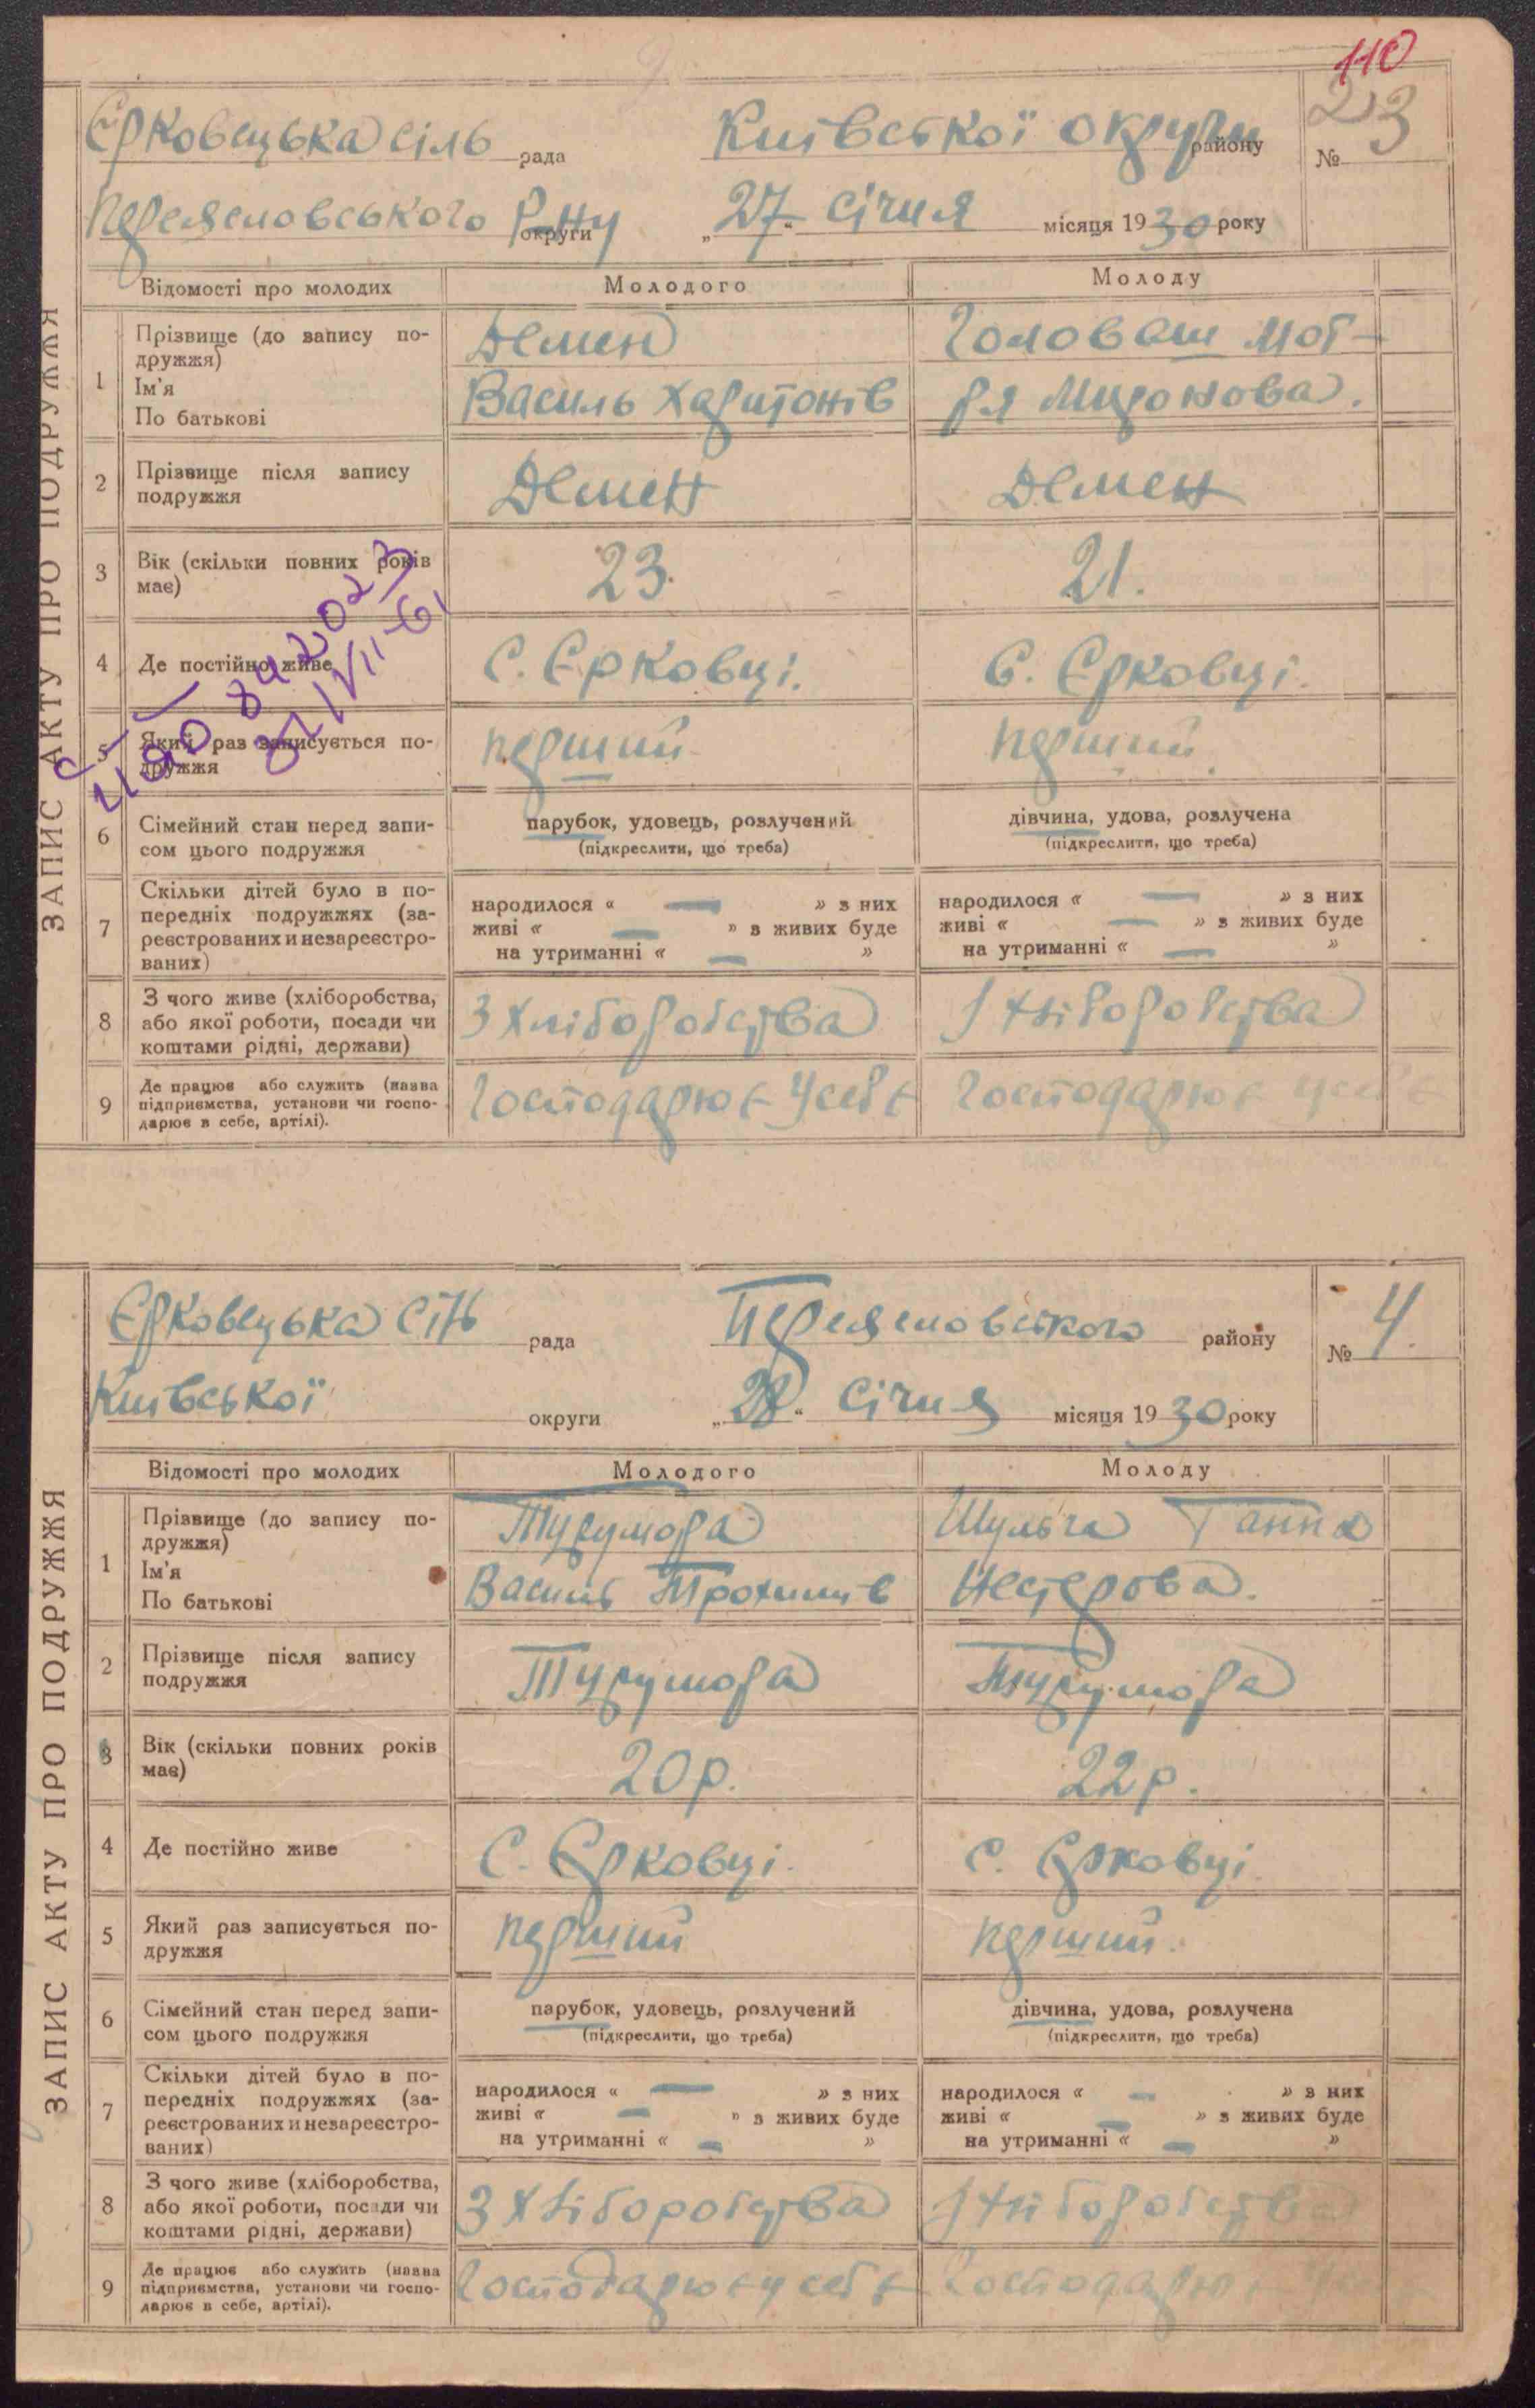 110
Єрковецька сіль рада Київської округи району № 3
Переяславського р-ну округи „27“ січня місяця 1930 року
ЗАПИС АКТУ ПРО ПОДРУЖЖЯ
Відомості про молодих Молодого Молоду
1 Прізвище (до запису по-
дружжя)
Ім'я
По батькові
Демен
Василь Харитонів
Головаш Мот-
ря Миронова.
2 Прізвище після запису
подружжя
Демен Демен
3 Вік (скільки повних років
має)
23. 21.
4 Де постійно живе С. Єрковці. С. Єрковці.
5 Який раз записується по-
дружжя
перший перший
6 Сімейний стан перед запи-
сом цього подружжя
парубок, удовець, розлучений
(підкреслити, що треба)
дівчина, удова, розлучена
(підкреслити, що треба)
7 Скільки дітей було в по-
передніх подружжях (за-
реєстрованих и незареєстро-
ваних)
народилося « — » з них
живі « — » з живих буде
на утриманні « — »
народилося « — » з них
живі « — » з живих буде
на утриманні « — »
8 З чого живе (хліборобства,
або якої роботи, посади чи
коштами рідні, держави)
З хліборобства З хліборобства
9 Де працює або служить (назва
підприємства, установи чи госпо-
дарює в себе, артілі).
Господарює у себе Господарює у себе
Єрковецька сіль рада Переяславського району № 4.
Київської округи „28“ січня місяця 1930 року
ЗАПИС АКТУ ПРО ПОДРУЖЖЯ
Відомості про молодих Молодого Молоду
1 Прізвище (до запису по-
дружжя)
Ім'я
По батькові
Василь Трохимів
Шульга Ганна
Нестерова.
2 Прізвище після запису
подружжя
3 Вік (скільки повних років
має)
20 р. 22 р.
4 Де постійно живе С. Єрковці. С. Єрковці.
5 Який раз записується по-
дружжя
перший перший.
6 Сімейний стан перед запи-
сом цього подружжя
парубок, удовець, розлучений
(підкреслити, що треба)
дівчина, удова, розлучена
(підкреслити, що треба)
7 Скільки дітей було в по-
передніх подружжях (за-
реєстрованих и незареєстро-
ваних)
народилося « — » з них
живі « — » з живих буде
на утриманні « — »
народилося « — » з них
живі « — » з живих буде
на утриманні « — »
8 З чого живе (хліборобства,
або якої роботи, посади чи
коштами рідні, держави)
З хліборобства З хліборобства
9 Де працює або служить (назва
підприємства, установи чи госпо-
дарює в себе, артілі).
Господарює у себе Господарює у